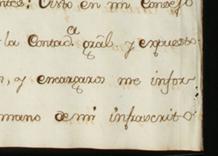 ntes: Visto en mi Consejo
la Contad.ª gräl, y expuesto
n, y encargaros me infor
mano de mi infraescrito